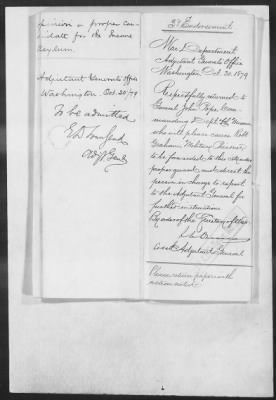 opinion a proper can-
didate for the Insane
Asylum.
Adjutant General's Office
Washington Oct. 20/79
To be admitted
E D Townsend
Adjt Genl
3d Endorsement
War Department
Adjutant General's Office
Washington Oct. 20, 1879
Respectfully returned to
General John Pope, Com-
manding Dept. of the Missouri
who will please cause
Graham, Military Prisoner
to be forwarded to this city under
proper guard, and direct the
person in charge to report
to the Adjutant General for
further instructions
By order of the Secretary of War
Asst. Adjutant General
Please return papers with
action noted.